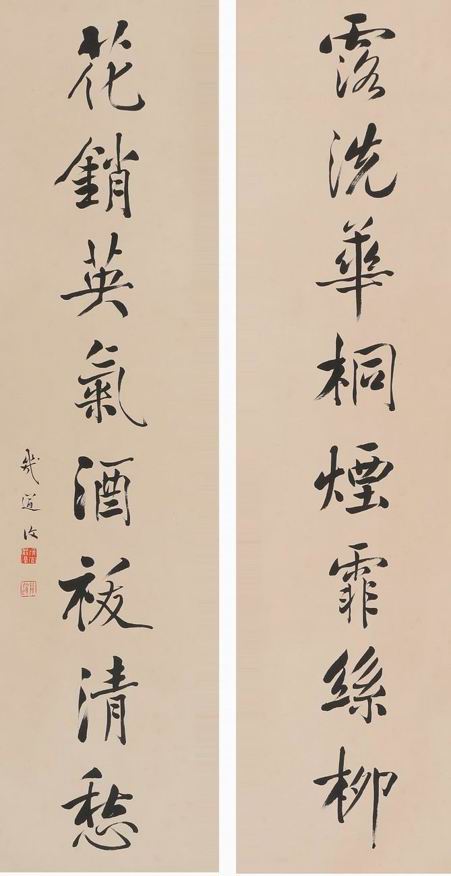 露洗華桐煙霏絲柳
花銷英氣酒祓清愁
幾道